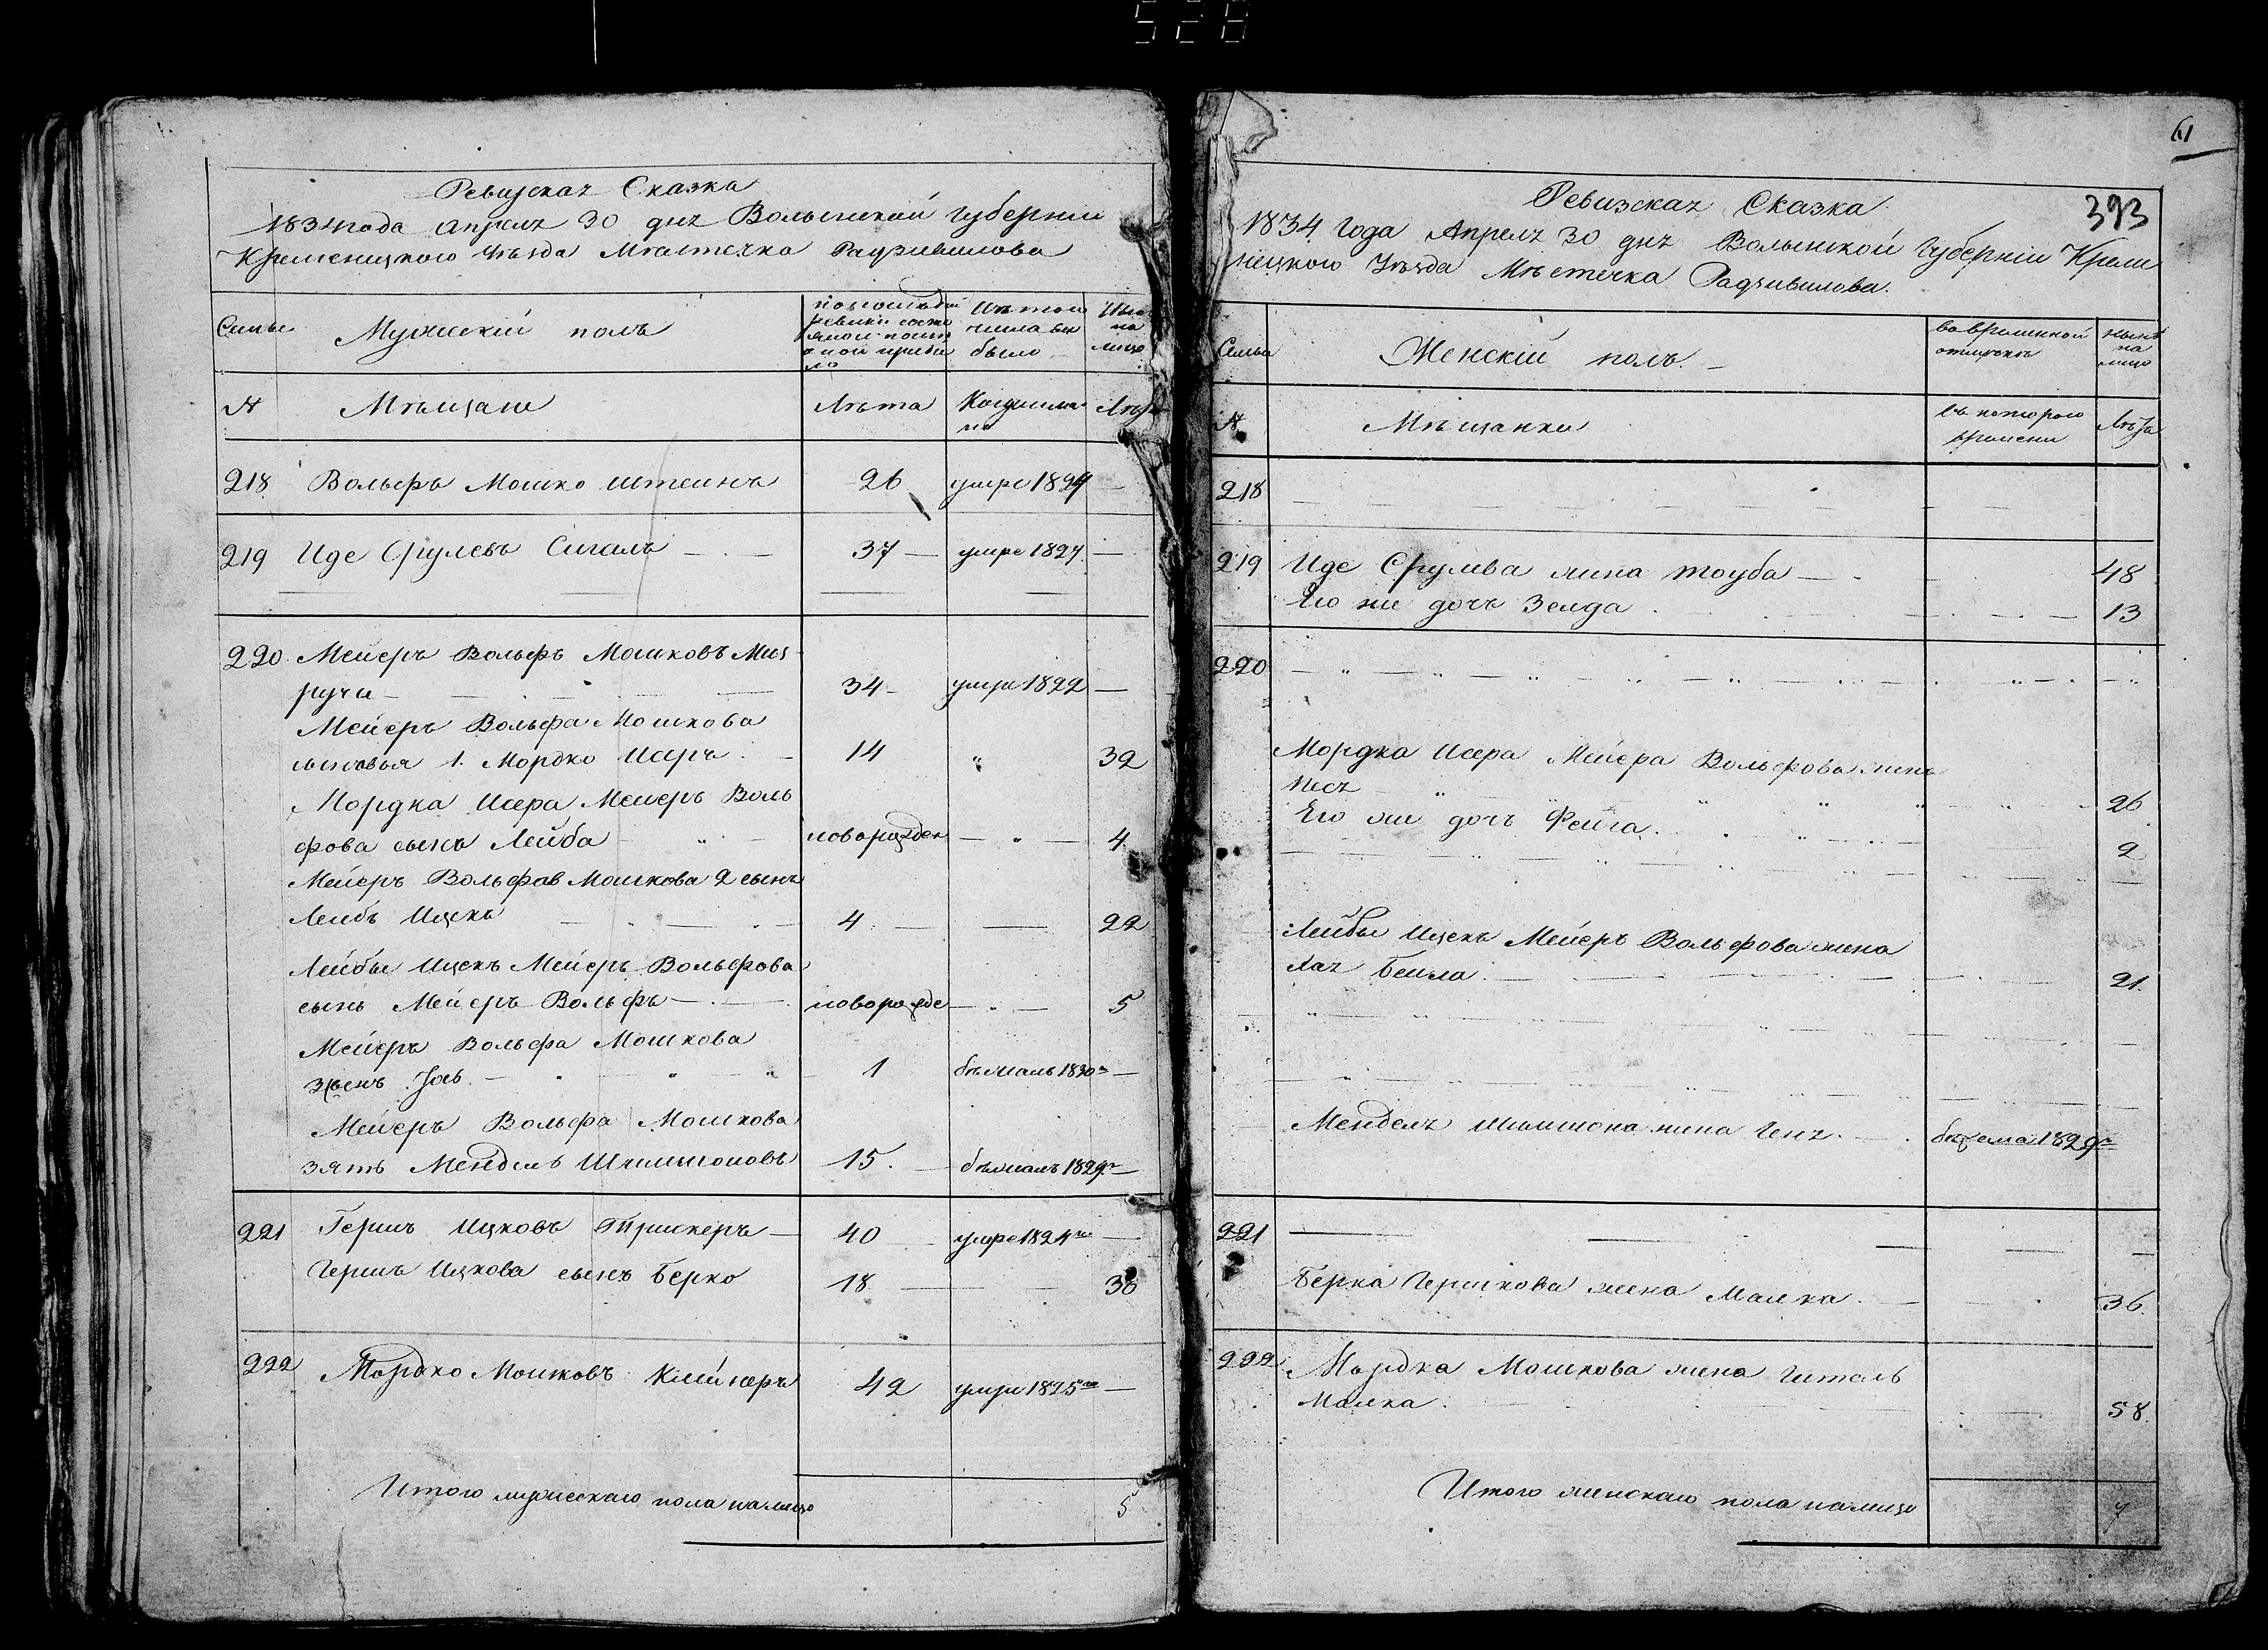 528
Ревизская Сказка
1834 года Апреля 30 дня Волынской Губернии
Кременецкого Уѣзда Мѣстечка Радзивилова
Семьи
Мужескій полъ
по последней
ревизіи состо
яло и после
оной прибы
ло
Изъ того
числа вы
было
Ныне
на
лицо
№
Мѣщане
Лѣта
Когда имен
но
Лѣта
218 Вольфъ Мошко Штеинъ 26 умре 1824 —
219 Иде Срулевъ Сигалъ — 37 — умре 1827 —
220 Мейеръ Вольфъ Мошковъ
34 — умре 1822 —
Мейеръ Вольфа Мошкова
сыновья 1. Мордко Исеръ 14 " 32
Мордка Исера Мейеръ Воль
фова сынъ Лейба новорожден — " — 4
Мейеръ Вольфов Мошкова 2 сынъ
Леибъ Ицекъ 4 — — 22
Лейбы Ицекъ Мейеръ Вольфова
сынъ Мейеръ Вольфъ — новорожде — " — 5
Мейеръ Вольфа Мошкова
3 сынъ 1 бѣжалъ 1830 —
Мейеръ Вольфа Мошкова
зять Мендель Шимшоновъ 15. бѣжалъ 1829 —
221 Гершъ Ицковъ Трискеръ — 40 — умре 1824 —
Герша Ицкова сынъ Берко 18 — — 38
222 Мордко Мошковъ 42 умре 1825 —
Итого мужескаго пола налицо 5
61
393
Ревизская Сказка
1834 Года Апреля 30 дня Волынской Губерніи Креме
нецкого Уѣзда Мѣстечка Радзивилова.
Семьи
Женскій полъ. —
во временной
отлучкѣ
Ныне
на
лицо
№
Мѣщанки
съ которого
времени
Лѣта
218
219 Иде Срулева жена Тоуба — 48
Его же дочь Зелда 13
220
Мордка Исера Мейера Вольфова жена
Песя 26
Его же дочь Фейга. 2
Лейбы Ицекъ Мейеръ Вольфова жена
Хая Беила 21.
Менделя Шимшона жена Геня. — бежала 1829
221
Берка Гершкова жена Малка. — 36.
222 Мордка Мошкова жена Гитель
Малка. 58.
Итого женскаго пола налицо 7